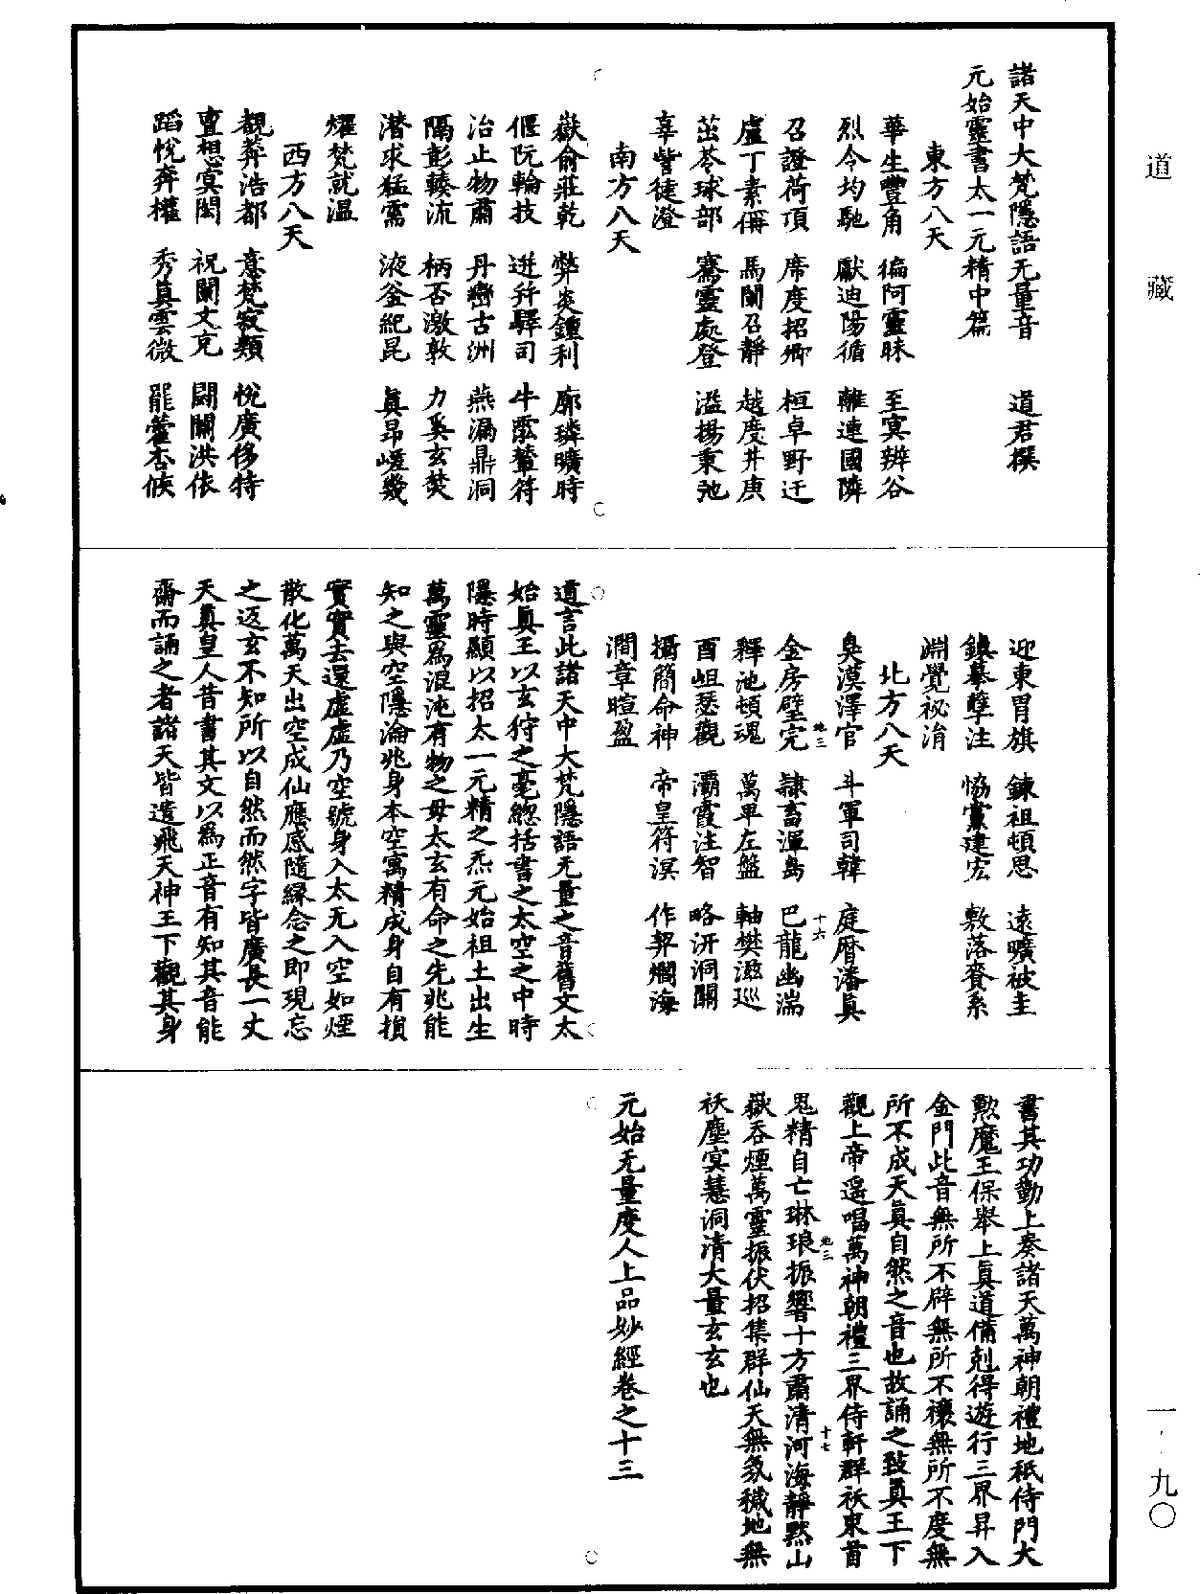 道藏
一·九〇
諸天中大梵隱語无量音　道君撰
元始靈書太一元精中篇
東方八天
華生豐角　徧阿靈昧　至冥辨谷
烈令均馳　獻迪陽循　離連國隣
召證荷頂　席度招卿　桓卓野迁
盧丁素偁　馬闌召靜　越度井庚
茁苓球部　騫靈處登　溢揚秉弛
辜訾徤澄
南方八天
嶽俞莊乾　弊炎鍾利　廓璘曠時
偃阮輪技　迸幷驛司　牛翫輦符
冶止物肅　丹巒古洲　燕漏鼎洞
隔彭輳流　柄否激敦　力奚玄焚
潛求猛需　液釜紀昆　真昂嵯幾
耀梵就溫
西方八天
觀葬浩都　意梵寂類　悅廣侈特
亶想寞閎　祝闌文克　闢關洪依
蹈悅奔權　秀真雲微　罷藿杏候
迎東胃旗　鍊祖頓思　遠曠被圭
鎮摹孽注　恊黨建宏　敷落賚系
淵覺祕湇
北方八天
臭漠澤官　斗軍司韓　庭曆潘真
地三
十六
金房壁完　隷畜渾島　巴龍幽湍
釋池頓魂　萬畢左盤　軸樊滋巡
酉岨瑟觀　灞霞注智　略汧洞關
攝簡命神　帝皇符溟　作契爛海
澗章暄盈
道言此諸天中大梵隱語无量之音舊文太
始真王以玄狩之毫緫括書之太空之中時
隱時顯以招太一元精之炁元始祖土出生
萬靈爲浪沌有物之母太玄有命之先兆能
知之與空隱淪兆身本空寓精成身自有損
實實去還虛虛乃空號身入太无入空如煙
散化萬天出空成仙應感隨緣念之即現忘
之返玄不知所以自然而然字皆廣長一丈
天真皇人昔書其文以爲正音有知其音能
齋而誦之者諸天皆遣飛天神王下觀其身
書其功勤上奏諸天萬神朝禮地祇侍門大
勲魔王保舉上真道備剋得遊行三界昇入
金門此音無所不辟無所不禳無所不度無
所不成天真自然之音也故誦之致真王下
觀上帝遥唱萬神朝禮三界侍軒群祅束首
鬼精自亡琳琅振響十方肅清河海靜黙山
地三
十七
嶽吞煙萬靈振伏招集群仙天無氛穢地無
祅塵冥慧洞清大量玄玄也
元始无量度人上品妙經卷之十三